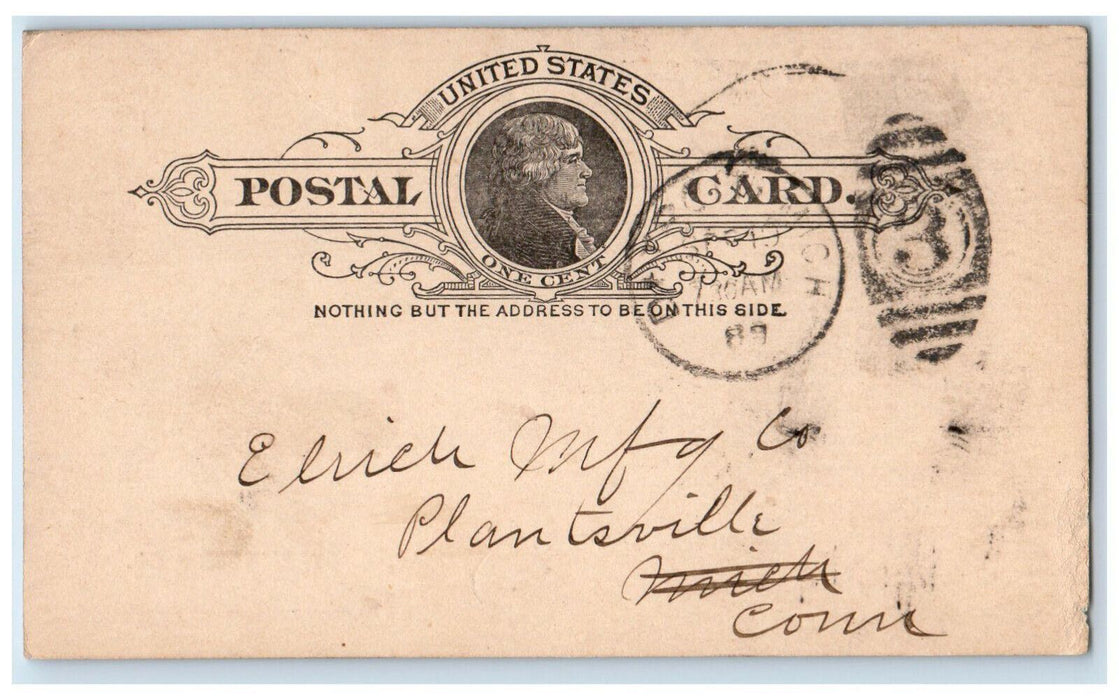 UNITED STATES
POSTAL CARD.
ONE CENT
NOTHING BUT THE ADDRESS TO BE ON THIS SIDE.
MICH
AM
89
3
Elrich Mfg Co
Plantsville
Mich
Conn